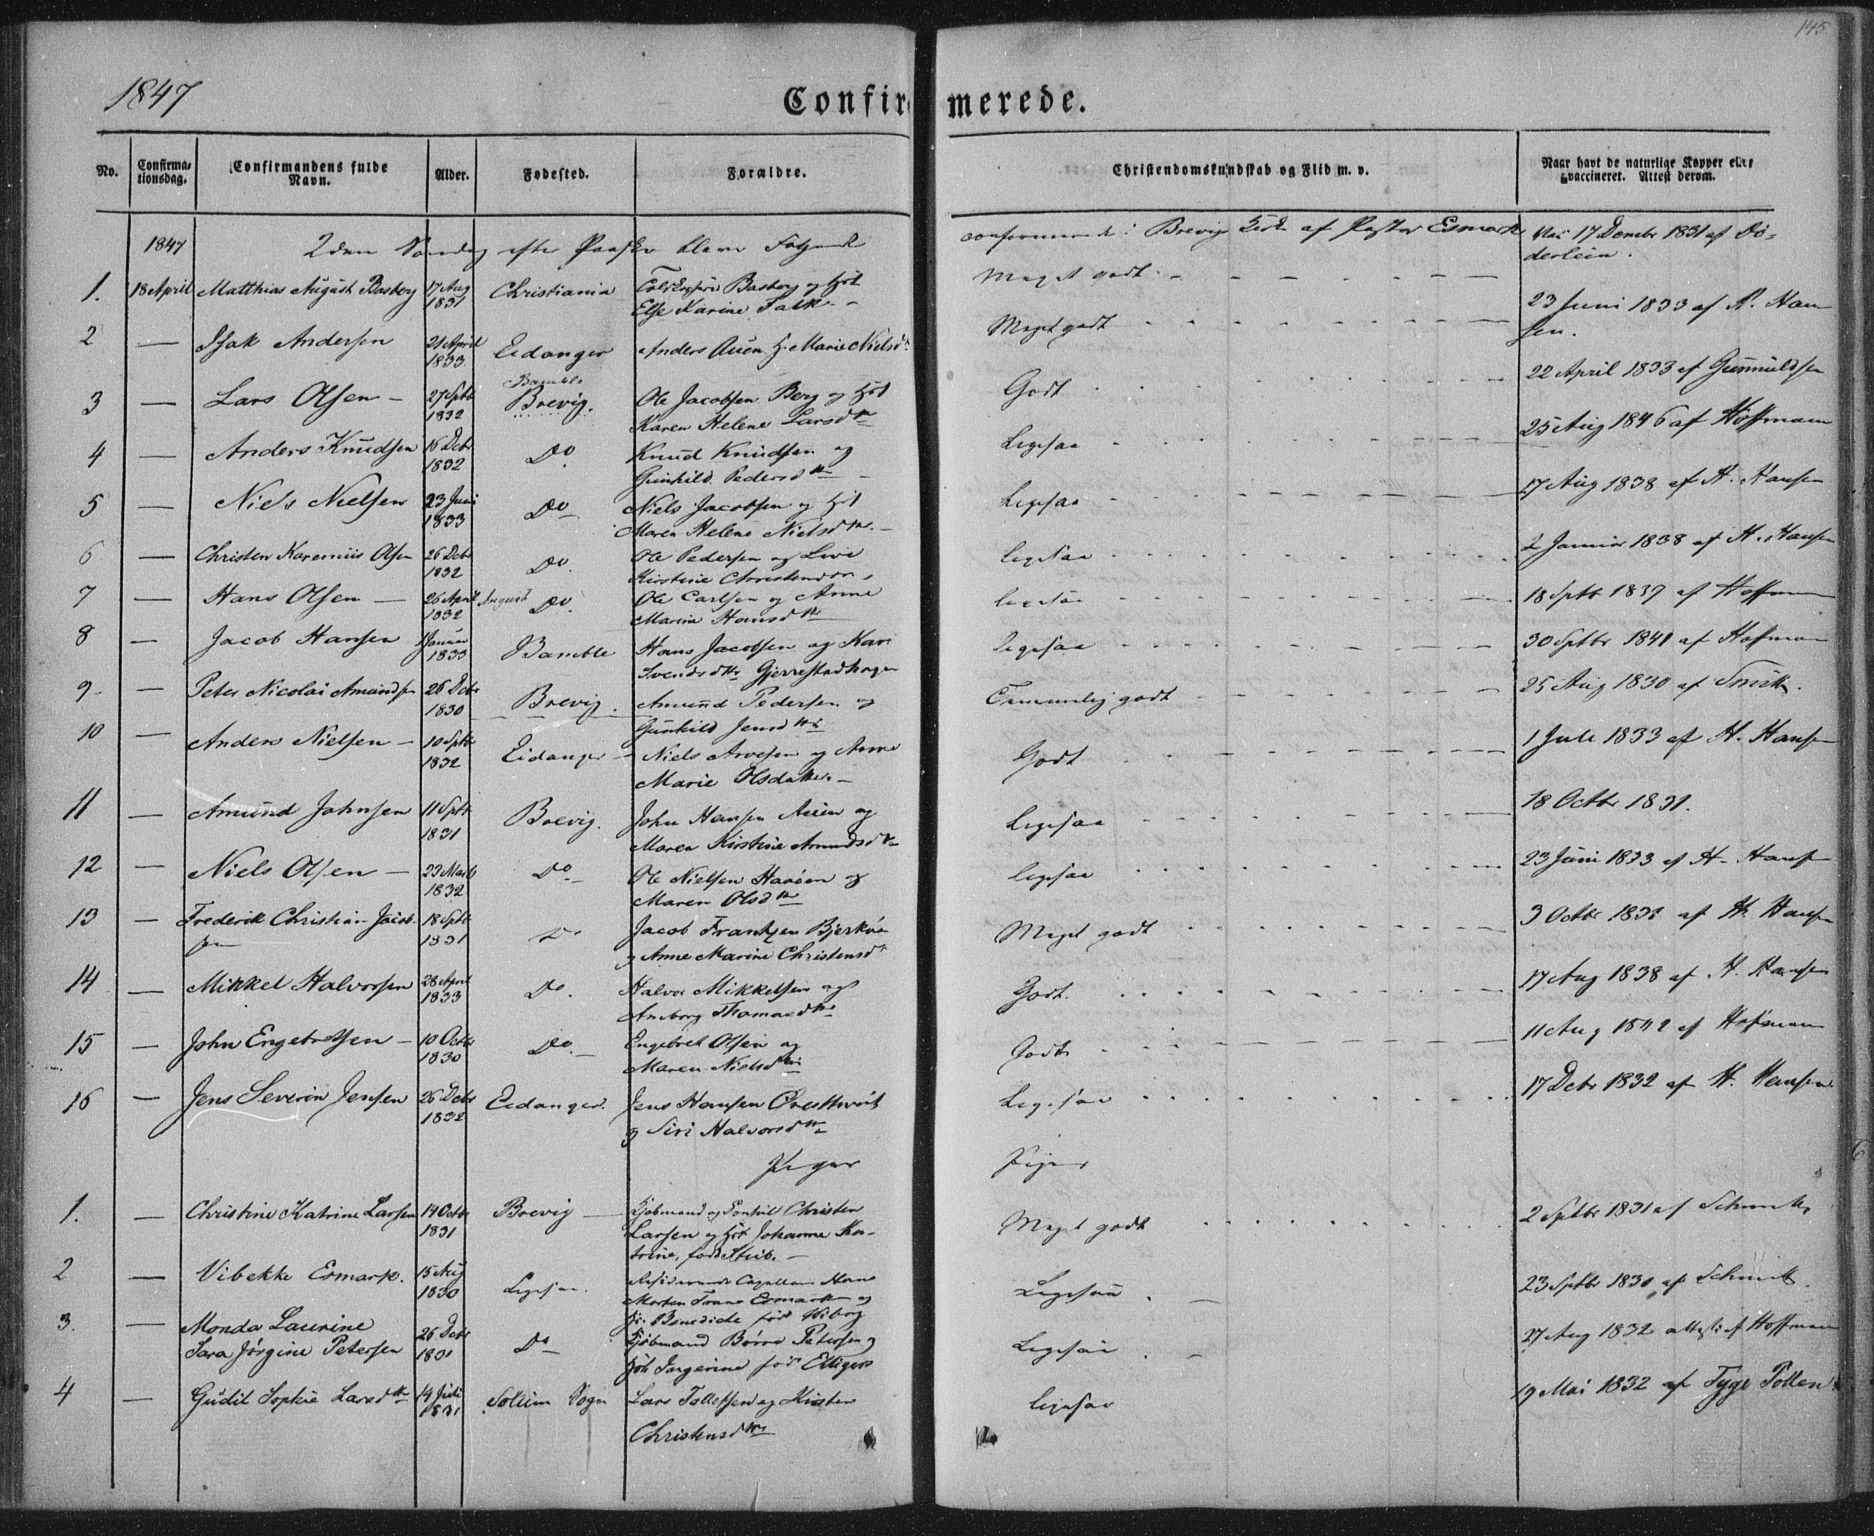 145
1847
Confirmerede.
No. Confirmationsdag. Confirmandens fulde Navn. Alder. Fødested. Forældre. Christendomskundskab og Flid m. v. Naar havt de naturlige Kopper eller vaccineret. Attest derom.
1847 2den Søndag efter Paaske bleve Følgende confirmerede i Brevig Kirke af Pastor Esmark
1. 18 April Matthias August Basberg 17 Aug 1831 Christiania Basberg og Hst Else Karine Falk Meget godt 17 Decembr 1831 af Døderlein.
2 — Isak Andersen 21 April 1833 Eidanger Anders Auen H. Marie Nielsdtr Meget godt 23 Juni 1833 af A. Hansen.
3 — Lars Olsen 27 Sptb 1832 Bamble Brevig. Ole Jacobsen Berg og Hst Karen Helene Larsdtr Godt 22 April 1833 af Gunnuldsen
4 — Anders Knudsen 16 Debr 1832 Do Knud Knudsen og Gunhild Pedersdtr Ligesaa 25 Aug 1846 af Hoffmann
5 — Niels Nielsen 23 Juni 1833 Do Niels Jacobsen og Hst Maren Helene Nielsdtr. Ligesaa 17 Aug 1838 af H. Hansen
6 — Christen Karenius Olsen 26 Debr 1832 Do. Ole Pedersen og Live Kirstine Christensdtr. Ligesaa 2 Januar 1838 af H. Hansen
7 — Hans Olsen 26 April August 1832 Do. Ole Carlsen og Anne Maria Hansdtr Ligesaa 18 Sptb 1839 af Hoffmann
8 — Jacob Hansen Januar 1833 Bamble Hans Jacobsen og Kari Svendsdtr Gjerrestadhagen Ligesaa 30 Sptbr 1841 af Hofman
9 — Peter Nicolai Amundsen 26 Debr 1830 Brevig. Amund Pedersen og Gunhild Jensdtr Temmelig godt 25 Aug 1830 af Smith.
10 — Anders Nielsen 10 Sptb 1832 Eidanger Niels Arvesen og Anne Marie Olsdatter. Godt 1 Juli 1833 af H. Hansen
11 — Amund Johnsen 11 Sptb 1831 Brevig. John Hansen Auen og Maren Kirstine Amundsdtr Ligesaa 18 Octbr 1831.
12 — Niels Olsen 23 Marts 1832 Do Ole Nielsen Haaøen og Maren Olsdtr Ligesaa 23 Juni 1833 af H. Hansen
13 — Frederik Christian Jacobsen 18 Sptb 1831 Do Jacob Frantzen Bjerkøe og Anne Marine Christensdtr Meget godt 3 Octbr af H. Hansen
14 — Mikkel Halvorsen 28 April 1833 Do. Halvor Mikkelsen og Anborg Thomasdtr Godt. 17 Aug 1838 af H. Hansen
15 — John Engebretsen 10 Octbr 1830 Do. Engebret Olsen og Maren Nielsdtr Godt 11 Aug 1842 af Hofman
16 — Jens Severin Jensen 26 Debr 1832 Eidanger. Jens Hansen Ørstvedt og Siri Halvorsdtr Ligesaa 17 Debr 1832 af H. Hansen
Piger Piger
1. — Christine Katrine Larsen 14 Octbr 1831 Brevig Kjøbmand og Christen Larsen og Hst Johanne Katrine, født Stub. Meget godt 2 Sptbr 1831 af Schmidt
2 — Vibekke Esmark. 15 Aug 1830 Ligesaa. Residerende Capellan Hans Morten Trane Esmark og H. Benedicte født Wiborg Ligesaa 23 Sptbr 1830 af Schmidt.
3. — Monda Laurine Sara Jørgine Petersen 26 Debr 1831 Do Kjøbmand Børre Petersen og Hst Ingerine født Ettigers Ligesaa 27 Aug 1832 attest af Hoffman
4 — Gudil Sophie Larsdtr 14 Juli 1831 Sollum Sogn Lars Tollefsen og Kirsten Christensdtr Ligesaa 19 Mai 1832 af Tyge